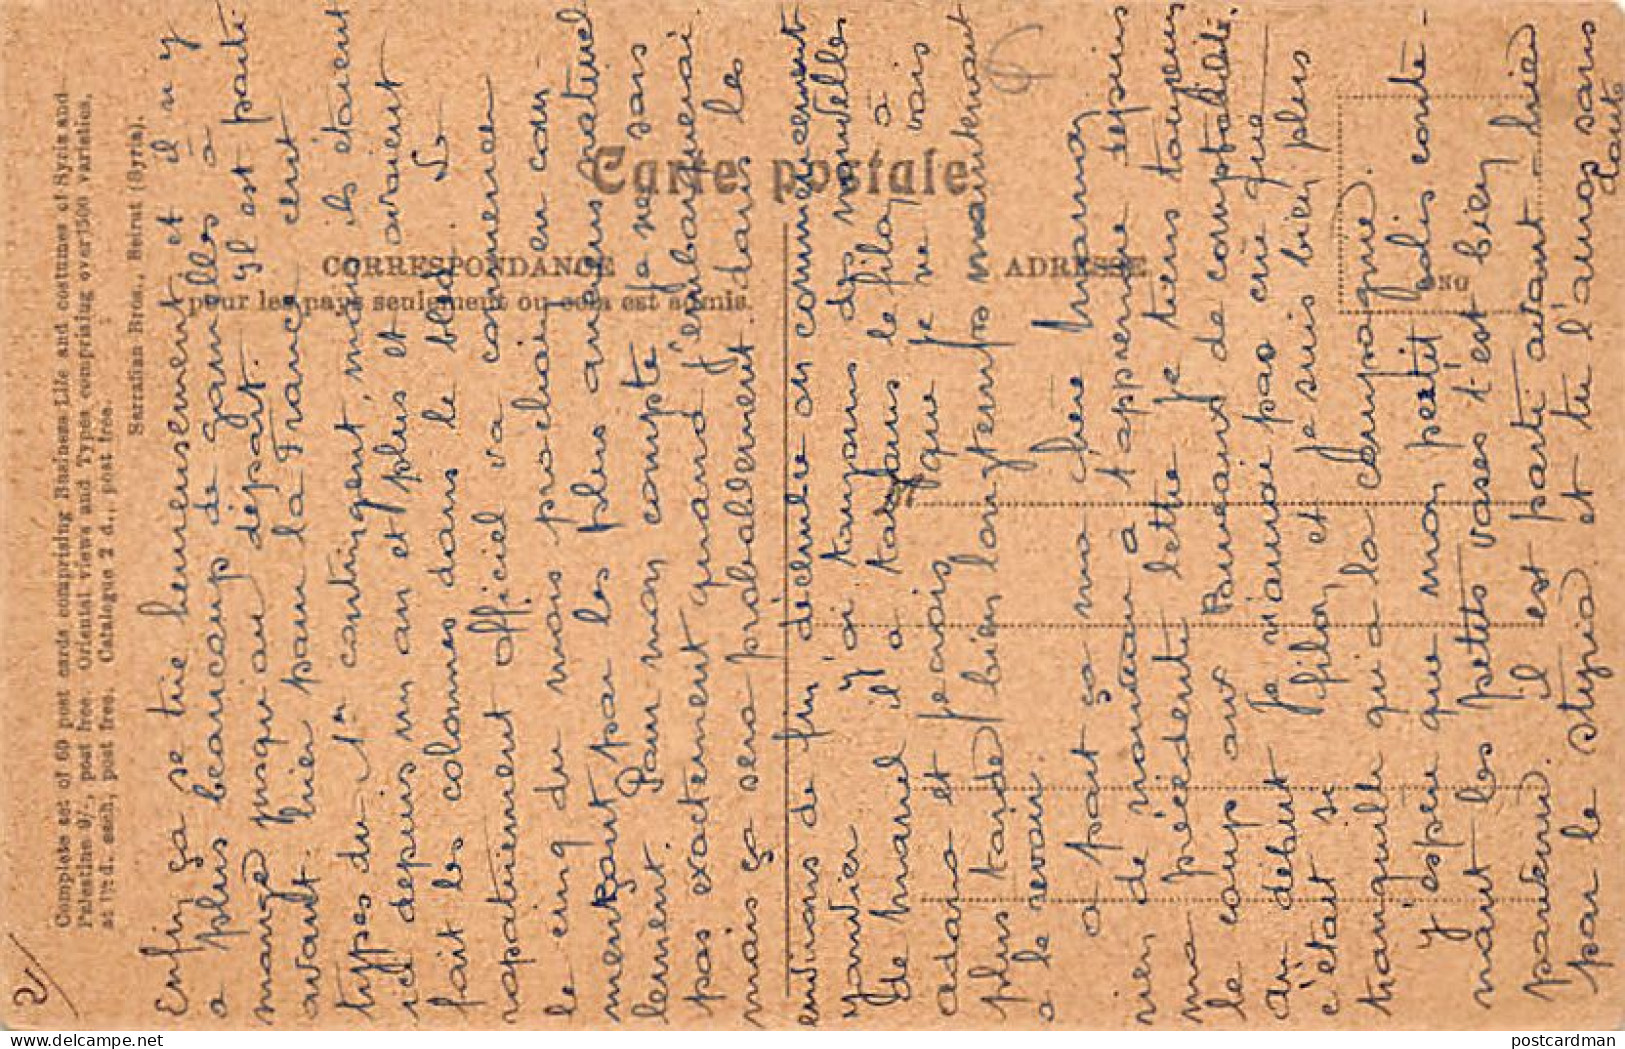 2/
Complete set of 60 post cards comprising Business Life and costumes of Syria and
Palestine 9/-, post free. Oriental views and Types comprising over 1500 varieties,
at 1½ d. each, post free. Catalogue 2 d., post free.
Sarrafian Bros., Beirut (Syria).
Carte postale
CORRESPONDANCE
pour les pays seulement où cela est admis.
ADRESSE
Enfin ça se tire heureusement et il n'y
a plus beaucoup de gamelles à
manger jusqu'au départ. Il est parti
avant hier pour la France cent
types du 1er contingent, mais ils étaient
ici depuis un an et plus et avaient
fait les colonnes dans le bled. Le
rapatriement officiel va commencer
le cinq du mois prochain en com-
mençant par les plus anciens naturel
lement. Pour mon compte je ne sais
pas exactement quand j'embarquerai
mais ça sera probablement dans les
environs de fin décembre ou commencement
janvier. J'ai toujours des nouvelles
de Marcel il a toujours le filon à
Adana et je crois que je ne vais
plus tarder bien longtemps maintenant
a le revoir.
a part ça ma chère maman
rien de nouveau à t'apprendre depuis
ma précédente lettre je tiens toujours
le coup aux Bureaux de comptabilité.
Au début je n'aurai pas cru que
c'était si filon, et je suis bien plus
tranquille qu'a la Campagne.
J'espère que mon petit colis conte-
nant les petits vases t'est bien
parvenu. il est parti avant hier
par le styria et tu l'auras sans
doute
postcardman